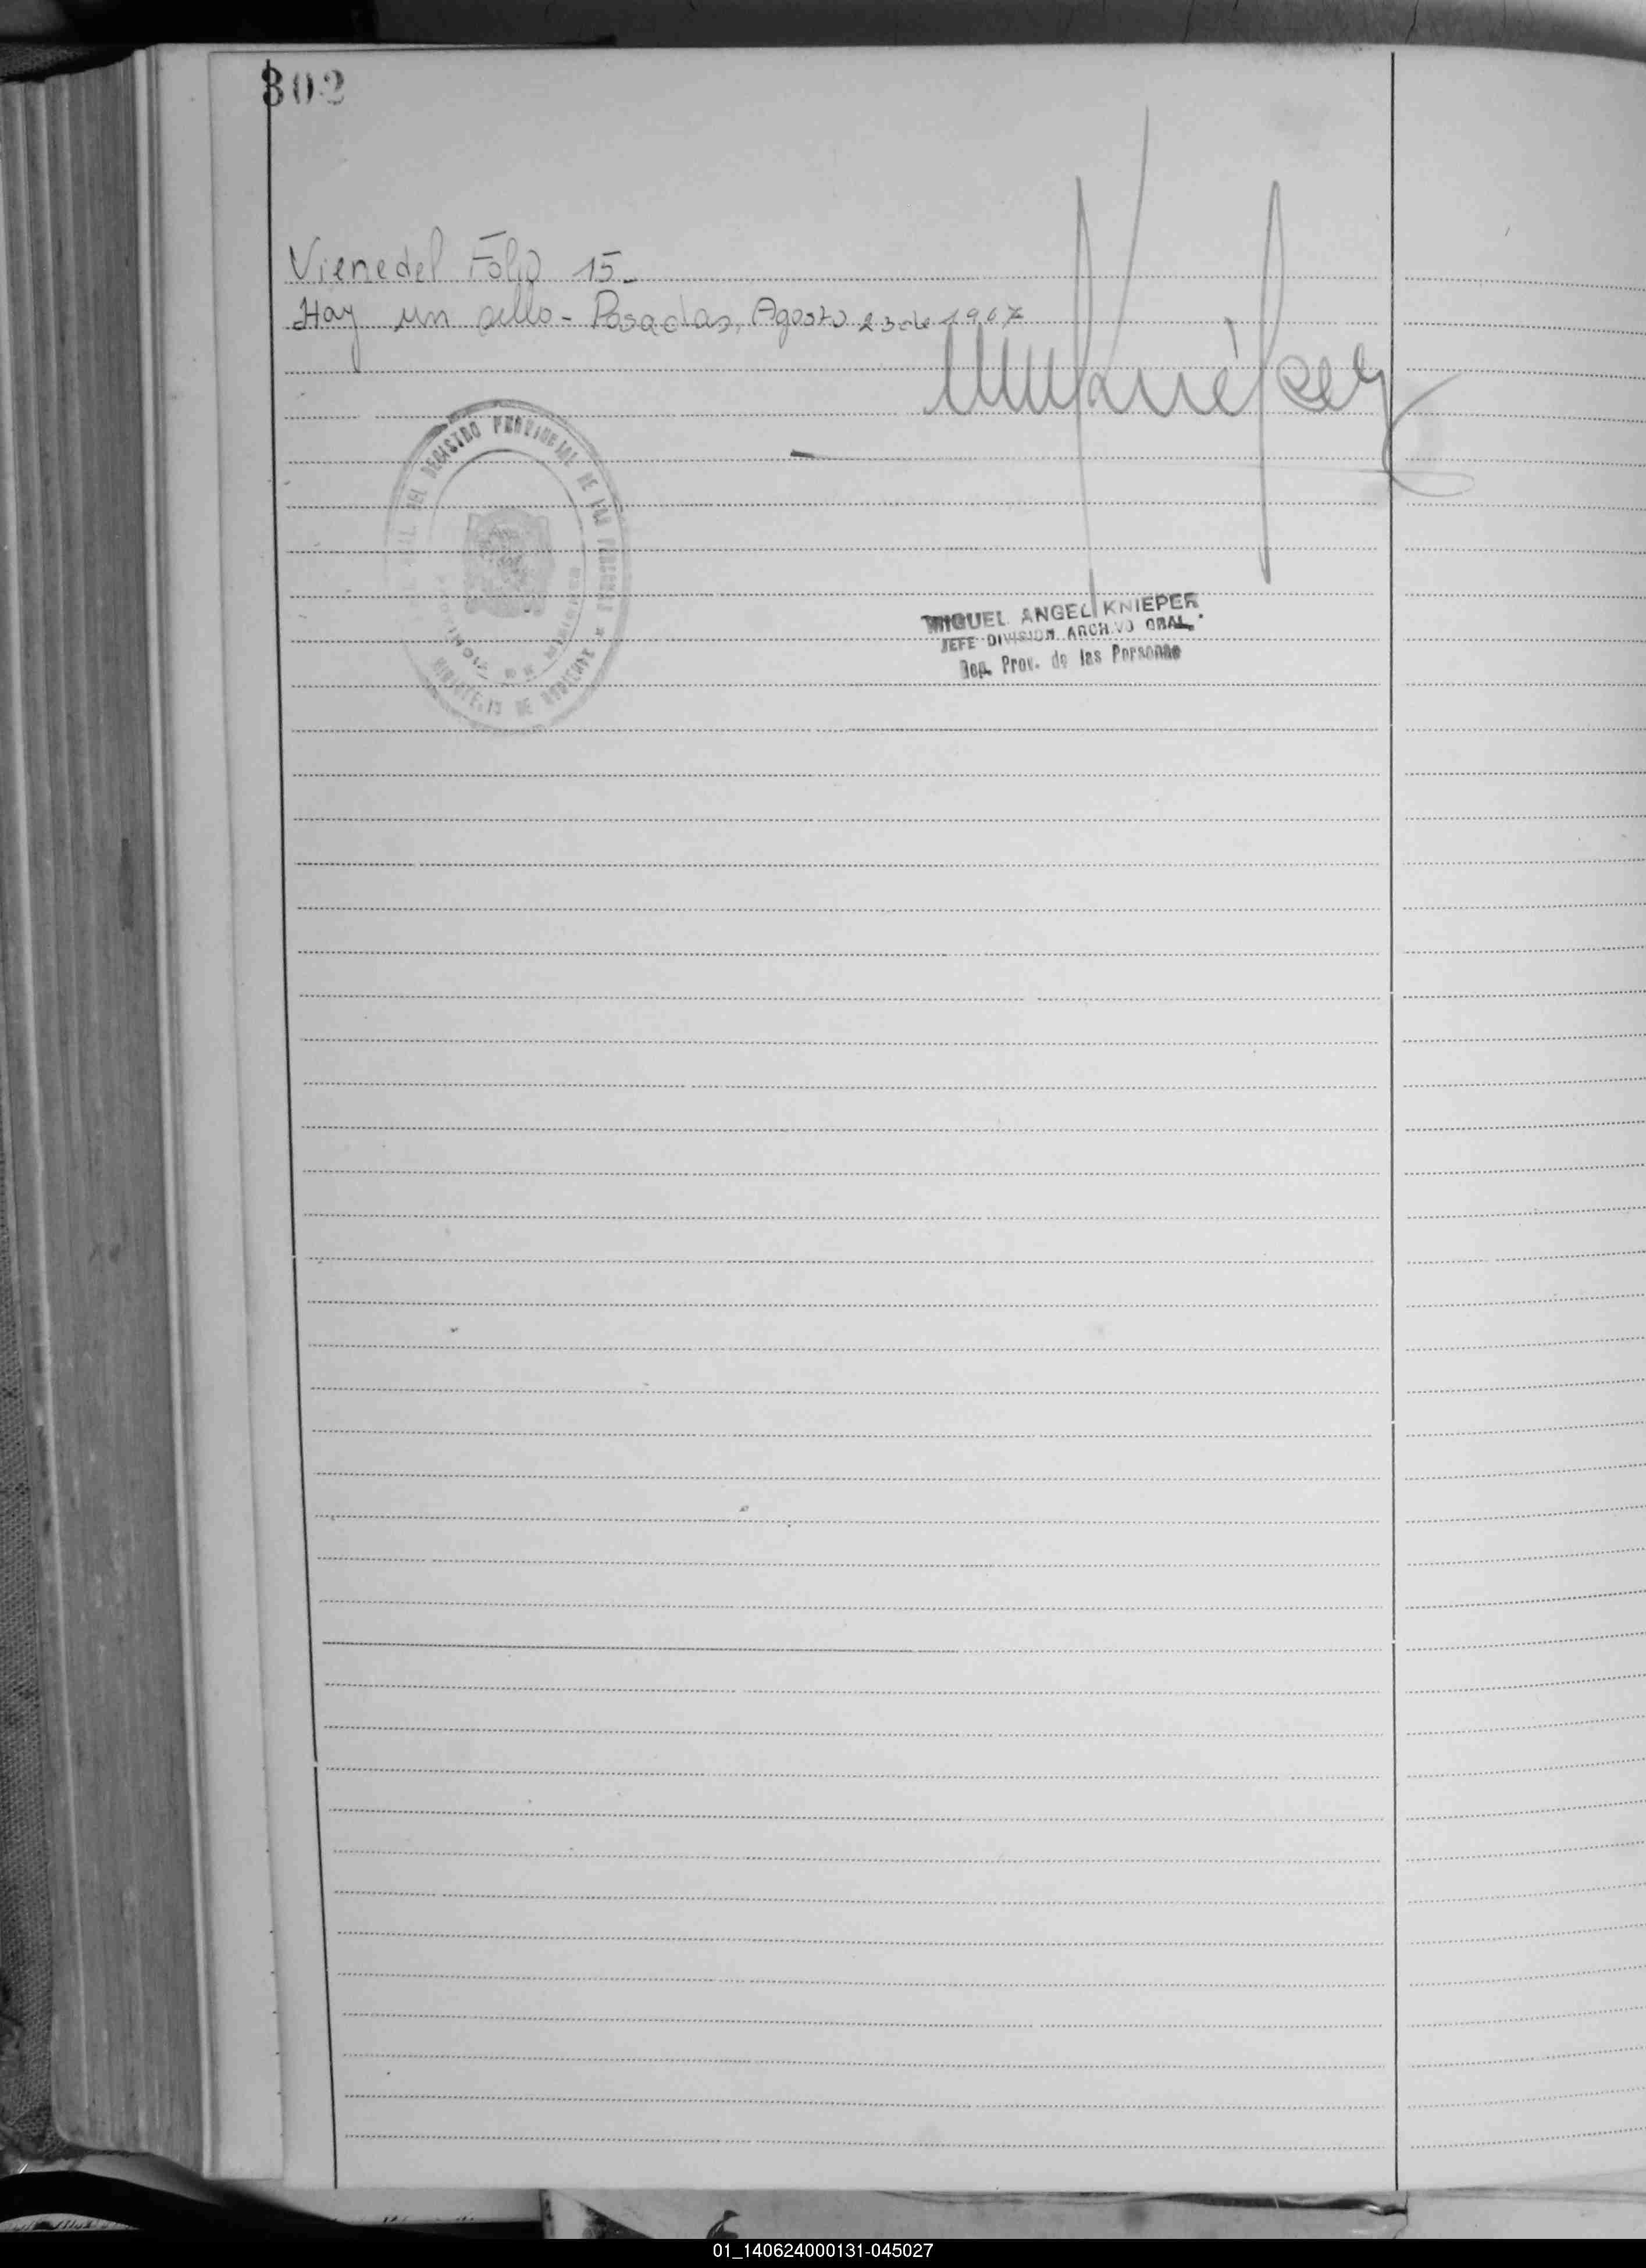 302
Viene del Folio 15-
Hay un sello - Posadas, Agosto 23 de 1967
DEL REGISTRO PROVINCIAL DE LAS PERSONAS *
MINISTERIO DE GOBIERNO
PROVINCIA DE MISIONES
MIGUEL ANGEL KNIEPER
JEFE DIVISION ARCHIVO GRAL.
Rep. Prov. de las Personas
01_140624000131-045027